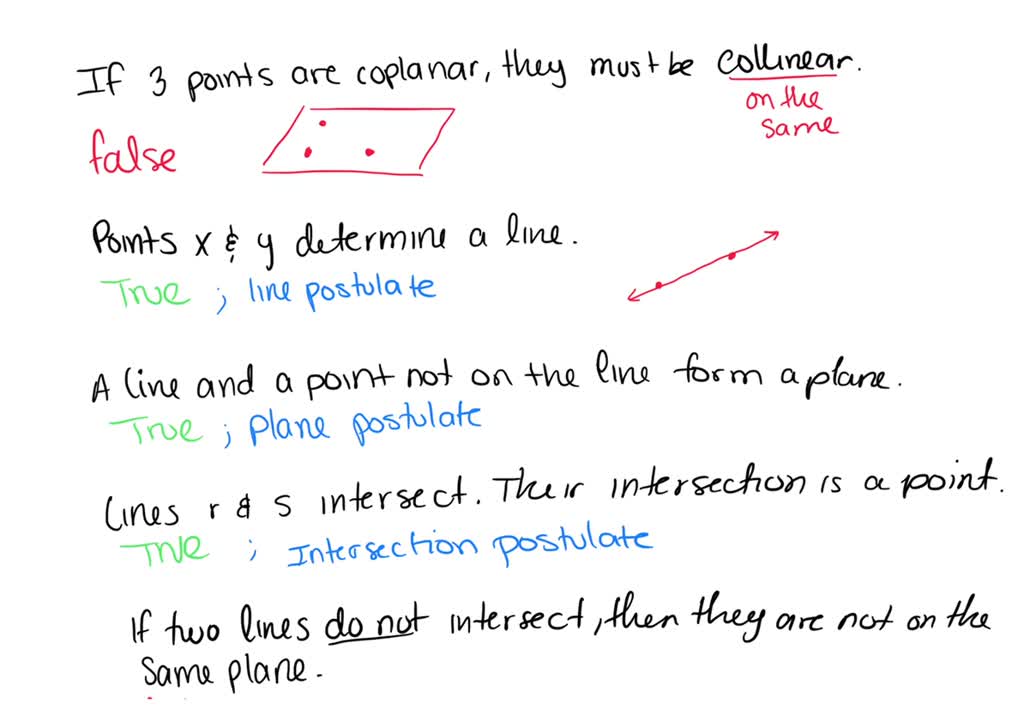 If 3 points are coplanar, they must be collinear.
on the
same
false
Points x & y determine a line.
True ; line postulate
A line and a point not on the line form a plane.
True ; plane postulate
Lines r & s intersect. Their intersection is a point.
True ; Intersection postulate
If two lines do not intersect, then they are not on the
same plane.